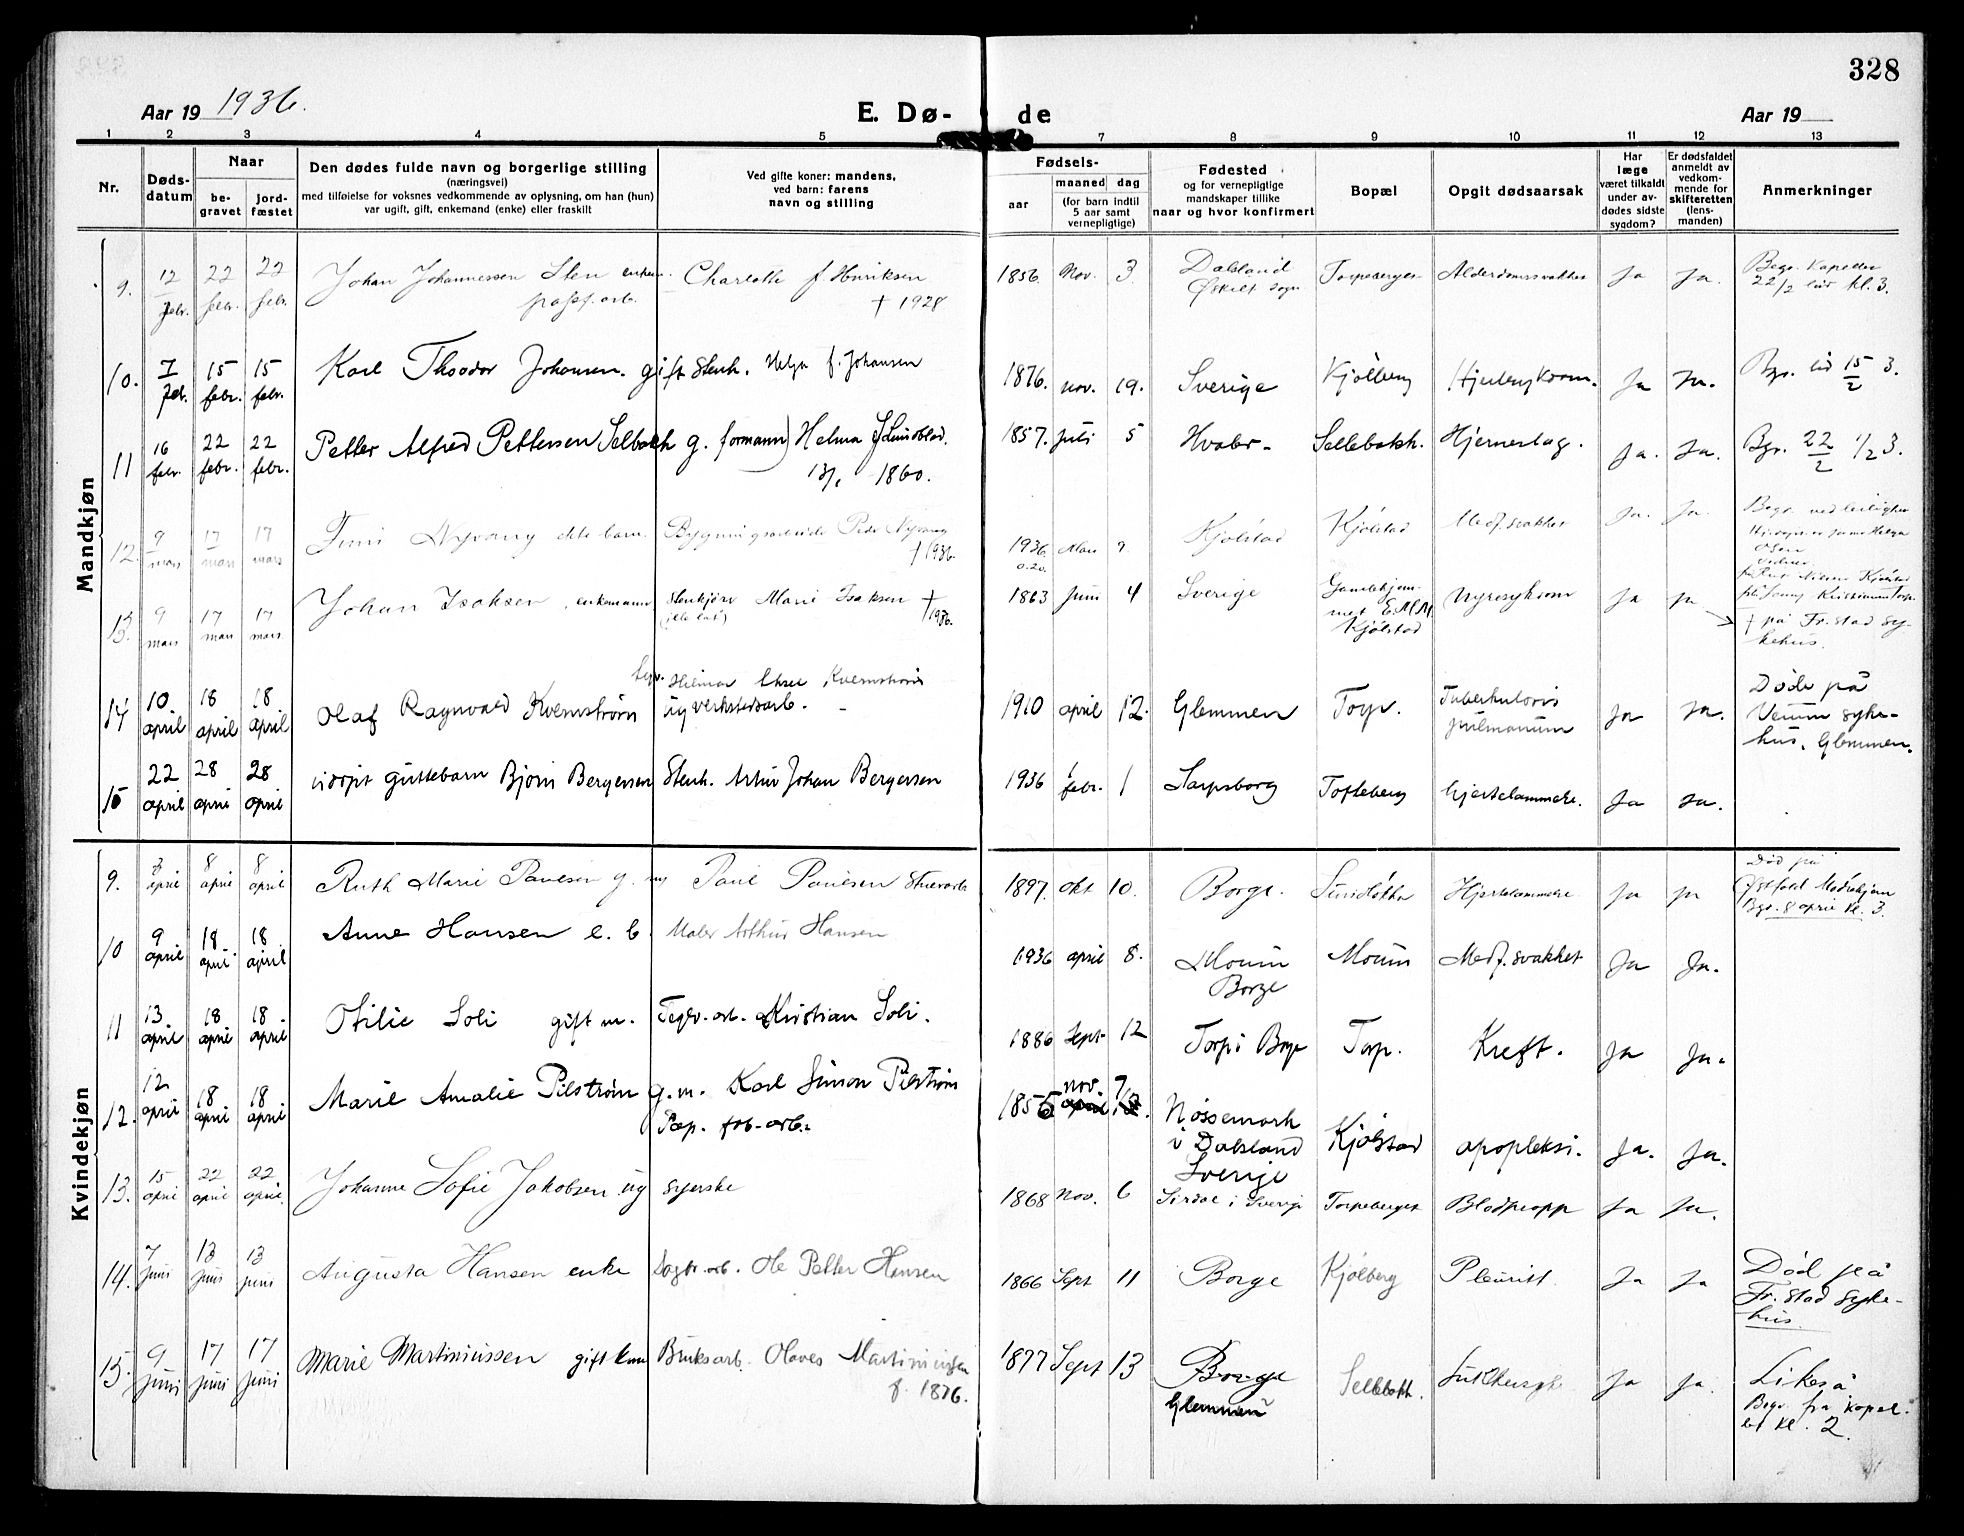 328
Aar 19 1936.
E. Dø-
de
Aar 19
1 2 3 4 5 7 8 9 10 11 12 13
Nr.
Døds-datum
Naar
be-gravet
jord-fæstet
Den dødes fulde navn og borgerlige stilling
(næringsvei)
med tilføielse for voksnes vedkommende av oplysning, om han (hun)
var ugift, gift, enkemand (enke) eller fraskilt
Ved gifte koner: mandens,
ved barn: farens
navn og stilling
Fødsels-
aar
maaned dag
(for barn indtil
5 aar samt
vernepligtige)
Fødested
og for vernepligtige
mandskaper tillike
naar og hvor konfirmert
Bopæl
Opgit dødsaarsak
Har
læge
været tilkaldt
under av-
dødes sidste
sygdom?
Er dødsfaldet
anmeldt av
vedkom-
mende for
skifteretten
(lens-
manden)
Anmerkninger
Mandkjøn
9. 12 febr. 22 febr. 22 febr. Johan Johannessen Sten Charlotte f Henriksen † 1928 1856. Nov. 3 Dalsland sogn Torpeberget Alderdomssvakhet Ja Ja. Begr. Kapellet 22/2 kl. 3.
10. 7 feb. 15 febr. 15 febr. Karl Theodor Johansen. gift Stenh. Helga f. Johansen 1876. nov. 19. Sverige Kjölberg Ja Ja. Bgr. 15/2 3.
11 16 febr. 22 febr. 22 febr. Petter Alfred Pettersen Selbakk g. formann Helma f Lundblad. 1860. 1857. juli 5 Hvaler - Sellebakk. Hjerneslag. Ja. Ja. Bgr. 22/2 1/2 3.
12. 9 mars 17 mars 17 mars Nyvang † 1936. 1936 Mars 9. Kjölstad Kjölstad Medf. svakhet Ja. Ja. Begr. ved Olsen
13. 9 mars 17 mars 17 mars Johan Isaksen, enkemann Stenhjörv Marie Isaksen † 1936. 1863 Juni 4 Sverige Gamlehjem-met Kjölstad Nyresykdom Ja Ja † på Fr.stad sy-kehus.
14 10. april 18 april 18 april Olaf Ragnvald Kvernstrøm ug verkstedsarb. Kvernstrøm 1910 april 12. Glemmen Torp. Tuberkulosis pulmonum Ja Ja. Døde på Veum syke-hus. Glemmen.
15 22 april 28 april 28 april udöpt guttebarn Bjørn Bergersen Stenh. Artur Johan Bergersen 1936 febr. 1 Sarpsborg Tofteberg hjertelammelse. Ja Ja.
Kvindekjøn
9. 3 april 8 april 8 april Ruth Marie Paulsen g. m Paul Paulsen Stuerarb 1897. okt 10. Borge. Sundløkka Hjertelammelse Ja Ja Død på Østfold Mødrehjem Bgr. 8 april kl. 3.
10 9 april 18 april 18 april Anne Hansen e. b. Maler Arthur Hansen 1936 april 8. Moum Borge Moum Medf. svakhet Ja Ja.
11 13 april 18 april 18 april Otilie Soli gift m. Teglv. arb. Kristian Soli. 1886 Sept 12 Torp i Borge Torp. Kreft. Ja Ja.
12. 12 april 18 april 18 april Marie Amalie Pilstrøm g. m. Karl Simon Pilstrøm Pap. fab. arb. 1855 nov 7 Nössemark i Dalsland Sverige Kjölstad apopleksi. Ja. Ja.
13. 15 april 22 april 22 april. Johanne Sofie Jakobsen ug syerske 1868 nov. 6 i Sverige Torpeberget Blodpropp Ja Ja.
14. 7 juni 13 juni 13 juni Augusta Hansen enke Dagv. arb. Ole Petter Hansen 1866 Sept 11 Borge Kjölberg Pleuritt. Ja Ja Død på Fr. stad syke-hus.
15. 9 juni 17 juni 17 juni Marie Martiniussen gift Bruksarb. Olaves Martiniussen f. 1876. 1877 Sept 13 Borge Glemmen Sellebakk. Ja Ja. Likeså Begr. fra kapel-let kl. 2.